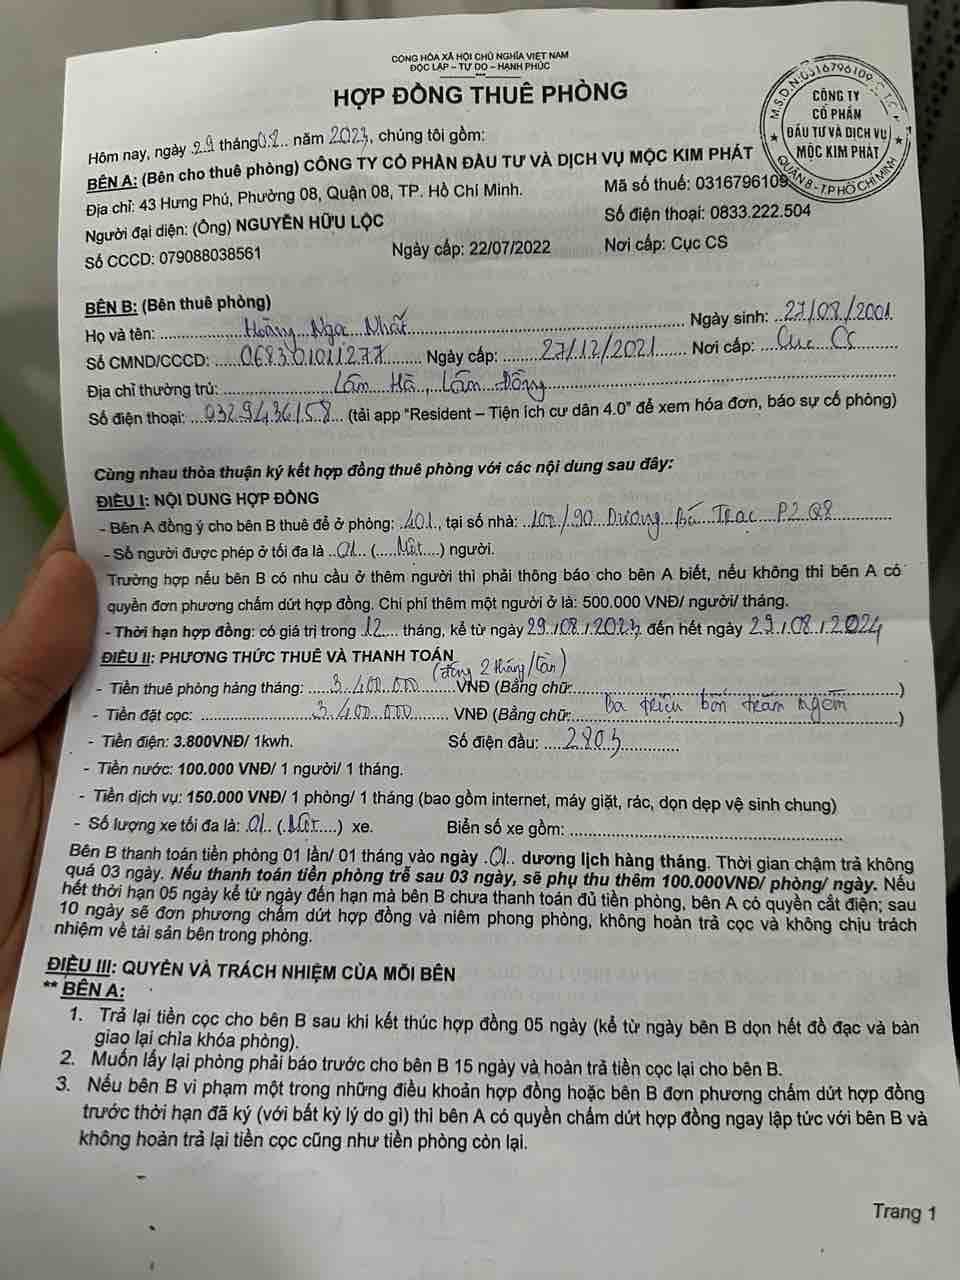 CỘNG HÒA XÃ HỘI CHỦ NGHĨA VIỆT NAM
ĐỘC LẬP – TỰ DO – HẠNH PHÚC
HỢP ĐỒNG THUÊ PHÒNG
M.S.D.N:0316796109-C.T.C.P
CÔNG TY
CỔ PHẦN
ĐẦU TƯ VÀ DỊCH VỤ
MỘC KIM PHÁT
QUẬN 8 - T.P HỒ CHÍ MINH
Hôm nay, ngày 29 tháng 08 năm 2023, chúng tôi gồm:
BÊN A: (Bên cho thuê phòng) CÔNG TY CỔ PHẦN ĐẦU TƯ VÀ DỊCH VỤ MỘC KIM PHÁT
Địa chỉ: 43 Hưng Phú, Phường 08, Quận 08, TP. Hồ Chí Minh. Mã số thuế: 0316796109
Người đại diện: (Ông) NGUYỄN HỮU LỘC Số điện thoại: 0833.222.504
Số CCCD: 079088038561 Ngày cấp: 22/07/2022 Nơi cấp: Cục CS
BÊN B: (Bên thuê phòng)
Họ và tên: Hoàng Ngọc Nhất Ngày sinh: 27/08/2001
Số CMND/CCCD: 068301011277 Ngày cấp: 27/12/2021 Nơi cấp: Cục CS
Địa chỉ thường trú: Lâm Hà, Lâm Đồng
Số điện thoại: 0329436158 (tải app "Resident – Tiện ích cư dân 4.0" để xem hóa đơn, báo sự cố phòng)
Cùng nhau thỏa thuận ký kết hợp đồng thuê phòng với các nội dung sau đây:
ĐIỀU I: NỘI DUNG HỢP ĐỒNG
- Bên A đồng ý cho bên B thuê để ở phòng: 401, tại số nhà: 100/90 Dương Bá Trạc P2 Q8
- Số người được phép ở tối đa là 01 (Một) người.
Trường hợp nếu bên B có nhu cầu ở thêm người thì phải thông báo cho bên A biết, nếu không thì bên A có
quyền đơn phương chấm dứt hợp đồng. Chi phí thêm một người ở là: 500.000 VNĐ/ người/ tháng.
- Thời hạn hợp đồng: có giá trị trong 12 tháng, kể từ ngày 29/08/2023 đến hết ngày 29/08/2024
ĐIỀU II: PHƯƠNG THỨC THUÊ VÀ THANH TOÁN
(đóng 2 tháng/lần)
- Tiền thuê phòng hàng tháng: 3.400.000 VNĐ (Bằng chữ: )
- Tiền đặt cọc: 3.400.000 VNĐ (Bằng chữ: Ba triệu bốn trăm ngàn )
- Tiền điện: 3.800VNĐ/ 1kwh. Số điện đầu: 2803
- Tiền nước: 100.000 VNĐ/ 1 người/ 1 tháng.
- Tiền dịch vụ: 150.000 VNĐ/ 1 phòng/ 1 tháng (bao gồm internet, máy giặt, rác, dọn dẹp vệ sinh chung)
- Số lượng xe tối đa là: 01 (Một) xe. Biển số xe gồm:
Bên B thanh toán tiền phòng 01 lần/ 01 tháng vào ngày 01 dương lịch hàng tháng. Thời gian chậm trả không
quá 03 ngày. Nếu thanh toán tiền phòng trễ sau 03 ngày, sẽ phụ thu thêm 100.000VNĐ/ phòng/ ngày. Nếu
hết thời hạn 05 ngày kể từ ngày đến hạn mà bên B chưa thanh toán đủ tiền phòng, bên A có quyền cắt điện; sau
10 ngày sẽ đơn phương chấm dứt hợp đồng và niêm phong phòng, không hoàn trả cọc và không chịu trách
nhiệm về tài sản bên trong phòng.
ĐIỀU III: QUYỀN VÀ TRÁCH NHIỆM CỦA MỖI BÊN
** BÊN A:
1. Trả lại tiền cọc cho bên B sau khi kết thúc hợp đồng 05 ngày (kể từ ngày bên B dọn hết đồ đạc và bàn
giao lại chìa khóa phòng).
2. Muốn lấy lại phòng phải báo trước cho bên B 15 ngày và hoàn trả tiền cọc lại cho bên B.
3. Nếu bên B vi phạm một trong những điều khoản hợp đồng hoặc bên B đơn phương chấm dứt hợp đồng
trước thời hạn đã ký (với bất kỳ lý do gì) thì bên A có quyền chấm dứt hợp đồng ngay lập tức với bên B và
không hoàn trả lại tiền cọc cũng như tiền phòng còn lại.
Trang 1